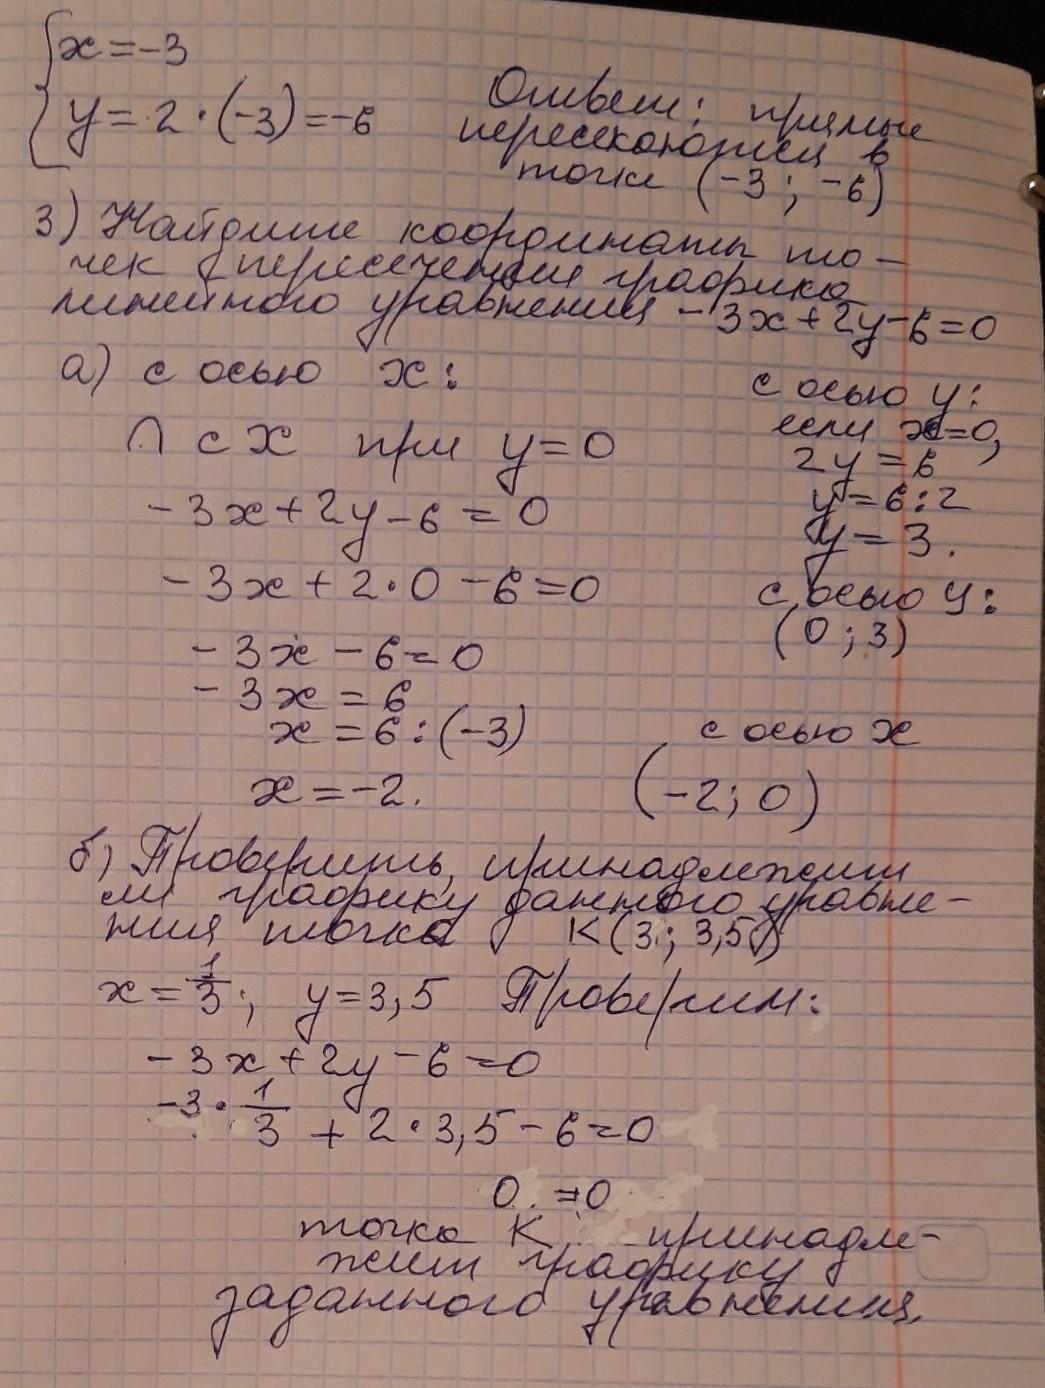 x = -3
y = 2 · (-3) = -6
Ответ: прямые
пересекаются в
точке (-3 ; -6)
3) Найдите координаты то-
чек пересечения графика
линейного уравнения -3x + 2y - 6 = 0
а) с осью x:
∩ с x при y = 0
-3x + 2y - 6 = 0
-3x + 2·0 - 6 = 0
-3x - 6 = 0
-3x = 6
x = 6 : (-3)
x = -2.
с осью y:
если x = 0,
2y = 6
y = 6 : 2
y = 3.
с осью y:
(0 ; 3)
с осью x
(-2; 0)
б) Проверить, принадлежит
ли графику данного уравне-
ния точка K (3 ; 3,5)
x = 1/3 ; y = 3,5 Проверим:
-3x + 2y - 6 = 0
-3 · 1/3 + 2 · 3,5 - 6 = 0
0 = 0
точка K принадле-
жит графику
заданного уравнения.